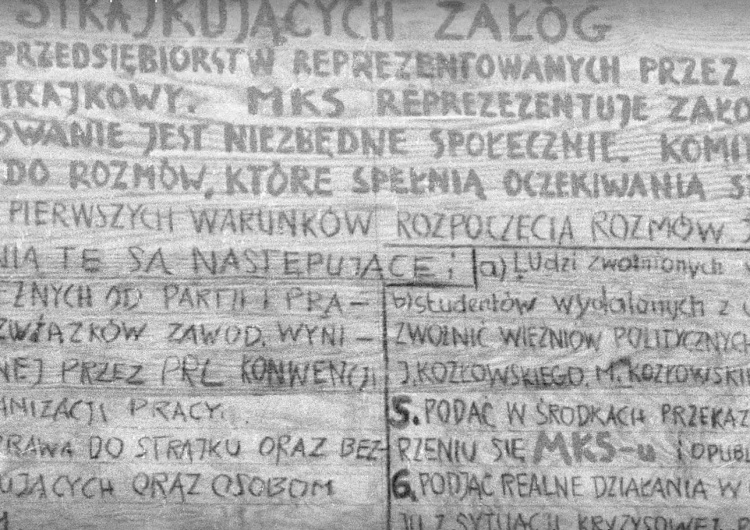 STRAJKUJĄCYCH ZAŁÓG
PRZEDSIĘBIORSTW REPREZENTOWANYCH PRZEZ
TRAJKOWY. MKS REPREZEZENTUJE ZAŁO
OWANIE JEST NIEZBĘDNE SPOŁECZNIE. KOMI
DO ROZMÓW, KTÓRE SPEŁNIĄ OCZEKIWANIA S
PIERWSZYCH WARUNKÓW ROZPOCZĘCIA ROZMÓW
NIA TE SĄ NASTĘPUJĄCE:
EŻNYCH OD PARTII I PRA-
ZWIĄZKÓW ZAWOD. WYNI-
NEJ PRZEZ PRL KONWENCJI
ANIZACJI PRACY.
PRAWA DO STRAJKU ORAZ BEZ-
UJĄCYCH ORAZ OSOBOM
a) Ludzi zwolnionych
b) studentów wydalonych z
ZWOLNIĆ WIĘŹNIÓW POLITYCZNYCH
J.KOZŁOWSKIEGO, M. KOZŁOWSKIE
5. PODAĆ W ŚRODKACH PRZEKAZ
RZENIU SIĘ MKS-u i OPUBL
6. PODJĄĆ REALNE DZIAŁANIA W
JU Z SYTUACJI KRYZYSOWEJ